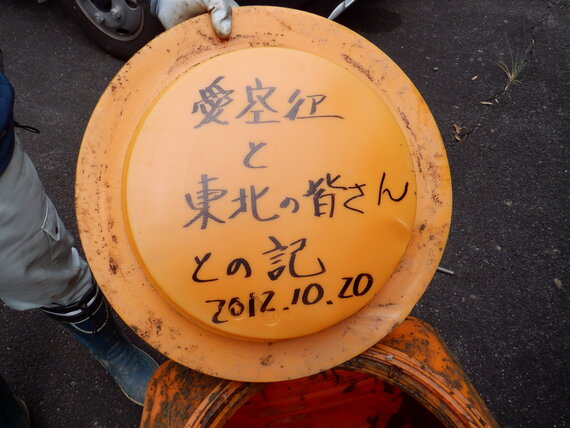 愛空行
と
東北の皆さん
との記
2012.10.20